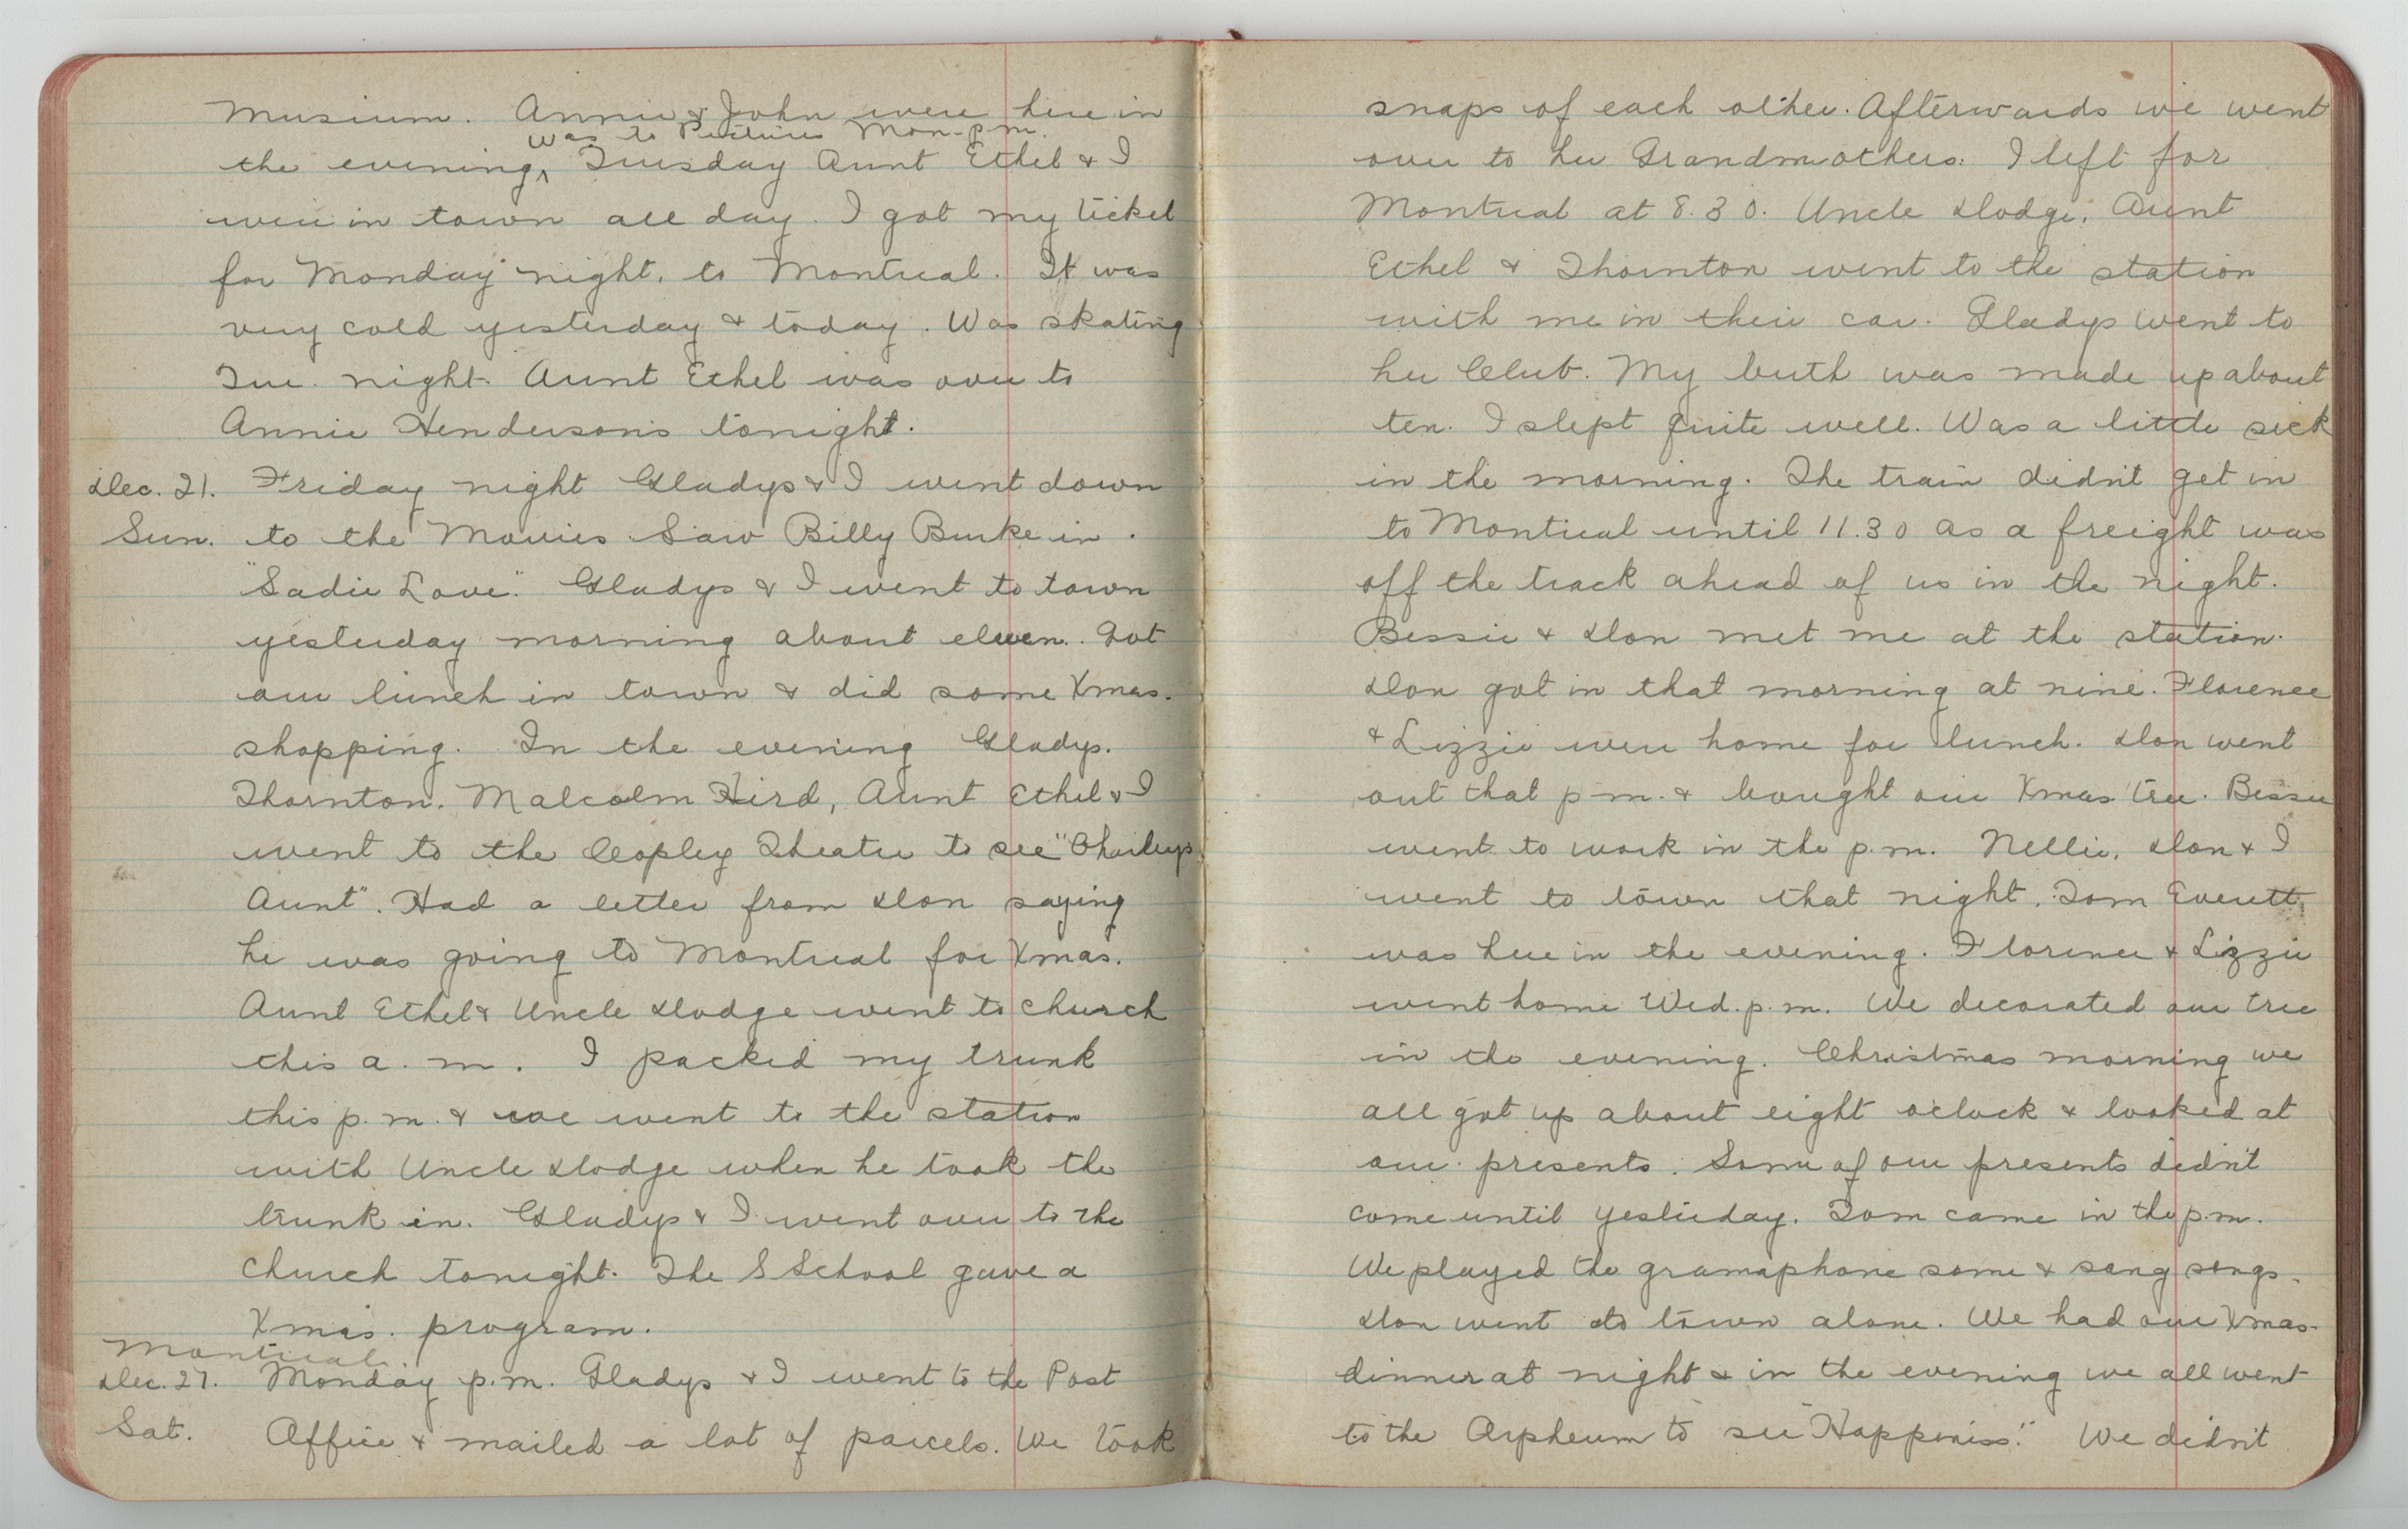 Musium. Annie & John were here in
was to Pictures Mon. p.m.
the evening, Tuesday Aunt Ethel & I
were in town all day. I got my ticket
for Monday night. to Montreal. It was
very cold yesterday & today. Was skating
Tue. night. Aunt Ethel was over to
Annie Henderson's tonight.
Dec. 21. Friday night Gladys & I went down
Sun. to the Movies Saw Billy Burke in
"Sadie Love". Gladys & I went to town
yesterday morning about eleven. Got
our lunch in town & did some Xmas.
shopping. In the evening Gladys.
Thornton. Malcolm Hird, Aunt Ethel & I
went to the Copley Theatre to see "Charleys
Aunt". Had a letter from Don saying
he was going to Montreal for Xmas.
Aunt Ethel & Uncle Dodge went to church
this a.m. I packed my trunk
this p.m. & we went to the station
with Uncle Dodge when he took the
trunk in. Gladys & I went over to the
church tonight. The S School gave a
Xmas. program.
Montreal
Dec. 27. Monday p.m. Gladys & I went to the Post
Sat. Office & mailed a lot of parcels. We took
snaps of each other. Afterwards we went
over to her Grandmothers. I left for
Montreal at 8.30. Uncle Dodge, Aunt
Ethel & Thornton went to the station
with me in their car. Gladys went to
her Club. My berth was made up about
ten. I slept quite well. Was a little sick
in the morning. The train didn't get in
to Montreal until 11.30 as a freight was
off the track ahead of us in the night.
Bessie & Don met me at the station.
Don got in that morning at nine. Florence
& Lizzie were home for lunch. Don went
out that p.m. & bought our Xmas tree. Bessie
went to work in the p.m. Nellie, Don & I
went to town that night. Tom Everett
was here in the evening. Florence & Lizzie
went home Wed. p.m. We decorated our tree
in the evening. Christmas morning we
all got up about eight oclock & looked at
our presents. Some of our presents didn't
come until yesterday. Tom came in the p.m.
We played the gramaphone some & sang songs.
Don went to town alone. We had our Xmas.
dinner at night & in the evening we all went
to the Orpheum to see "Happiness." We didn't